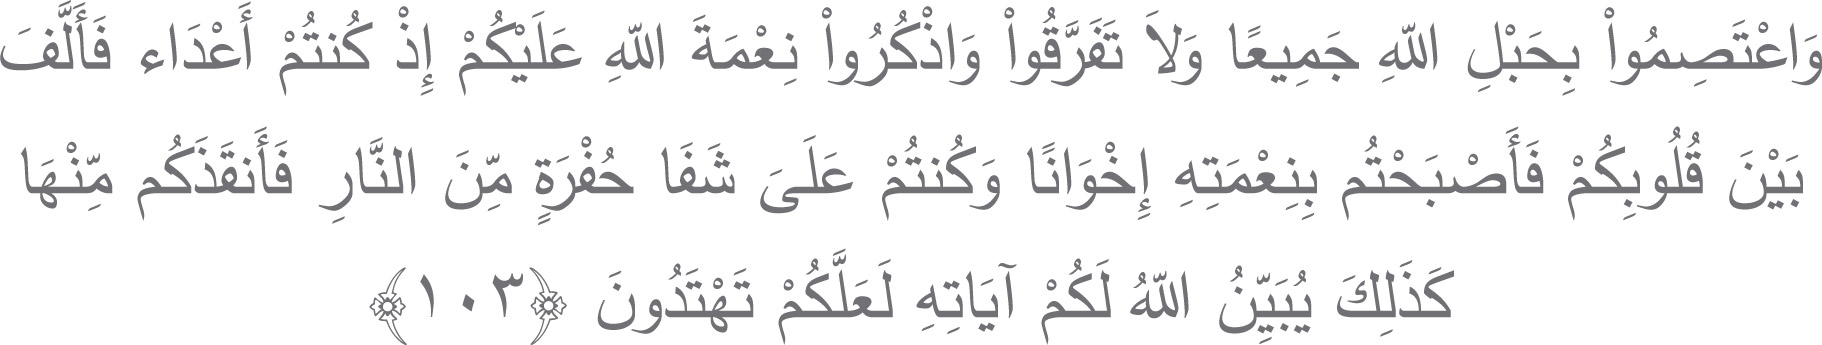 وَاعْتَصِمُواْ بِحَبْلِ اللّهِ جَمِيعًا وَلاَ تَفَرَّقُواْ وَاذْكُرُواْ نِعْمَةَ اللّهِ عَلَيْكُمْ إِذْ كُنتُمْ أَعْدَاء فَأَلَّفَ
بَيْنَ قُلُوبِكُمْ فَأَصْبَحْتُم بِنِعْمَتِهِ إِخْوَانًا وَكُنتُمْ عَلَىَ شَفَا حُفْرَةٍ مِّنَ النَّارِ فَأَنقَذَكُم مِّنْهَا
كَذَلِكَ يُبَيِّنُ اللّهُ لَكُمْ آيَاتِهِ لَعَلَّكُمْ تَهْتَدُونَ ﴿١٠٣﴾